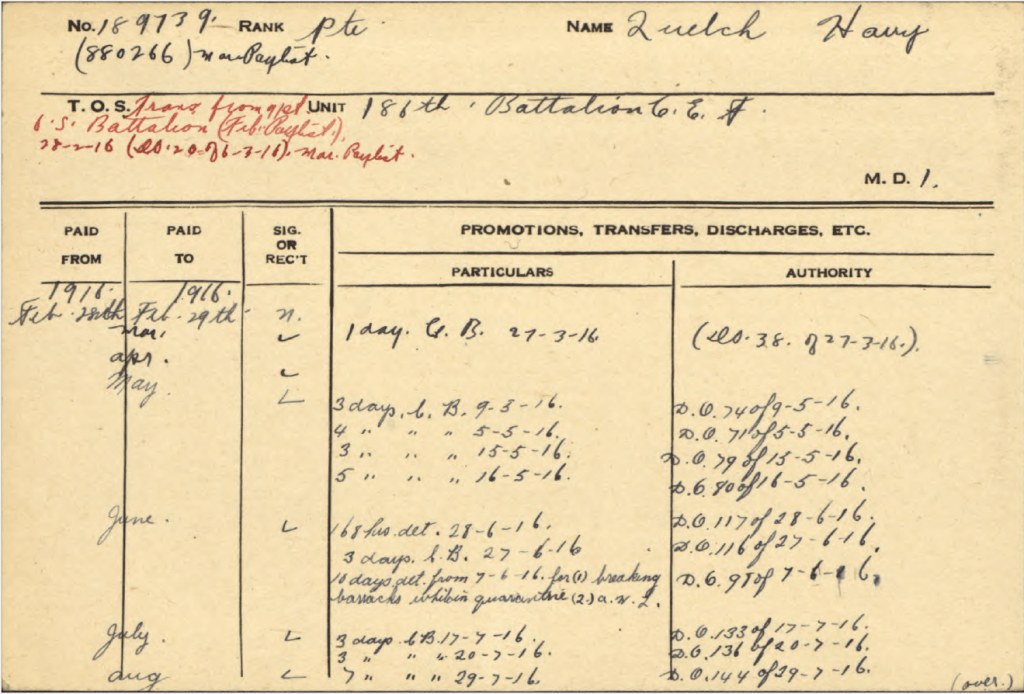 No. 189739. RANK Pte NAME Quelch Harry
(880266) mar. Paylist.
T. O. S. Trans from 91st UNIT 186th. Battalion C. E. F.
O.S. Battalion (Feb. Paylist).
28-2-16 (D.O. 20 of 6-3-16). mar. Paylist.
M. D. 1.
PAID FROM PAID TO SIG. OR REC'T PROMOTIONS, TRANSFERS, DISCHARGES, ETC.
PARTICULARS AUTHORITY
1916. 1916.
Feb. 28th Feb. 29th. n.
mar. 1 day. C. B. 27-3-16. (D.O. 38. of 27-3-16.).
apr.
May.
3 days. C. B. 9-3-16. D.O. 74 of 9-5-16.
4 " " " 5-5-16. D.O. 71 of 5-5-16.
3 " " " 15-5-16. D.O. 79 of 15-5-16.
5 " " " 16-5-16. D.O. 80 of 16-5-16.
June. 168 hrs. det. 28-6-16. D.O. 117 of 28-6-16.
3 days. C. B. 27-6-16 D.O. 116 of 27-6-16.
10 days det. from 7-6-16. for (1) breaking D.O. 98 of 7-6-16.
barracks whilst in quarantine (2) a. w. L.
July. 3 days C B. 17-7-16. D.O. 133 of 17-7-16.
3 " " " 20-7-16. D.O. 136 of 20-7-16.
aug 7 " " " 29-7-16. D.O. 144 of 29-7-16.
(over.)